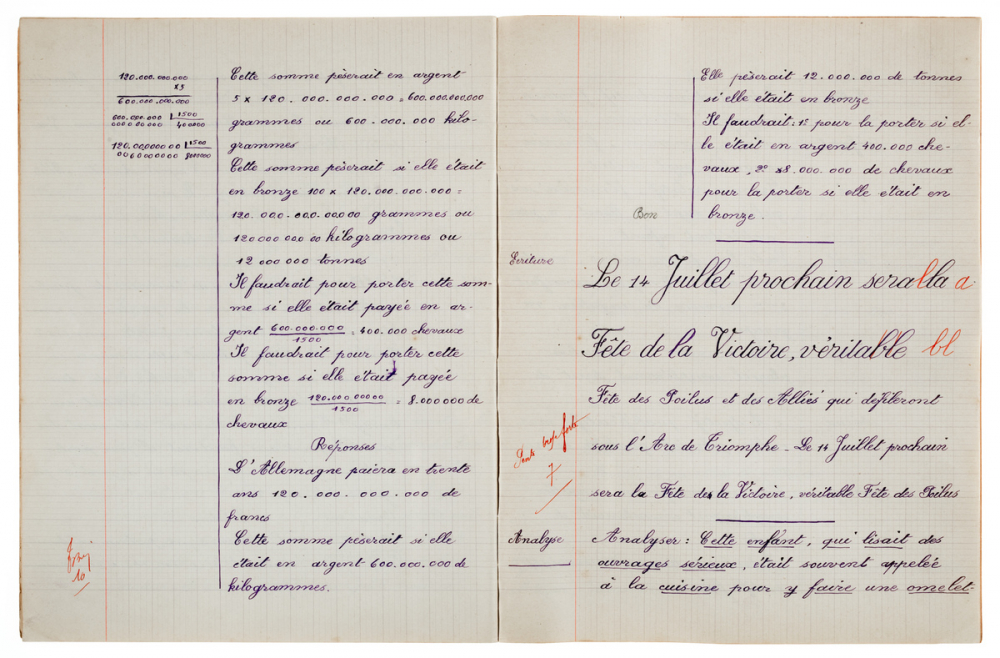 120.000.000.000
x5
600.000.000.000
600.000.000 | 1500
00000000 400000
120.000000 00 | 1500
006000000 8000000
Cette somme pèserait en argent
5 x 120.000.000.000 = 600.000.000.000
grammes ou 600.000.000 kilo-
grammes
Cette somme pèserait si elle était
en bronze 100 x 120.000.000.000 =
120.000.000.00000 grammes ou
120000 000 00 kilogrammes ou
12 000 000 tonnes
Il faudrait pour porter cette som-
me si elle était payée en ar-
gent 600.000.000/1500 = 400.000 chevaux
Il faudrait pour porter cette
somme si elle était payée
en bronze 120.000.00000/1500 = 8.000000 de
chevaux
Réponses
L'Allemagne paiera en trente
ans 120.000.000.000 de
francs
Cette somme pèserait si elle
était en argent 600.000.000 de
kilogrammes.
10
Elle pèserait 12.000.000 de tonnes
si elle était en bronze
Il faudrait : 1º pour la porter si el-
le était en argent 400.000 che-
vaux, 2º 8.000.000 de chevaux
pour la porter si elle était en
bronze.
Bon
Ecriture
Le 14 Juillet prochain sera la a
Fête de la Victoire, véritable bl
Fête des Poilus et des Alliés qui défileront
sous l'Arc de Triomphe - Le 14 Juillet prochain
sera la Fête de la Victoire, véritable Fête des Poilus
Pente trop forte
7
Analyse
Analyser : Cette enfant, qui lisait des
ouvrages sérieux, était souvent appelée
à la cuisine pour y faire une omelet-